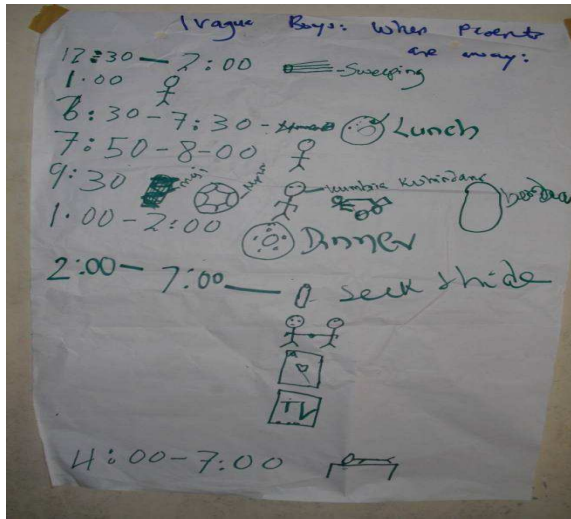 Iragua Boys: When Parents
are away:
12:30 — 2:00 -Sweeping
1.00
6:30-7:30- Lunch
7:50-8-00
9:30 maji
1.00-2:00
Dinner
2:00- 7:00 — Seek & hide
TV
4:00-7:00